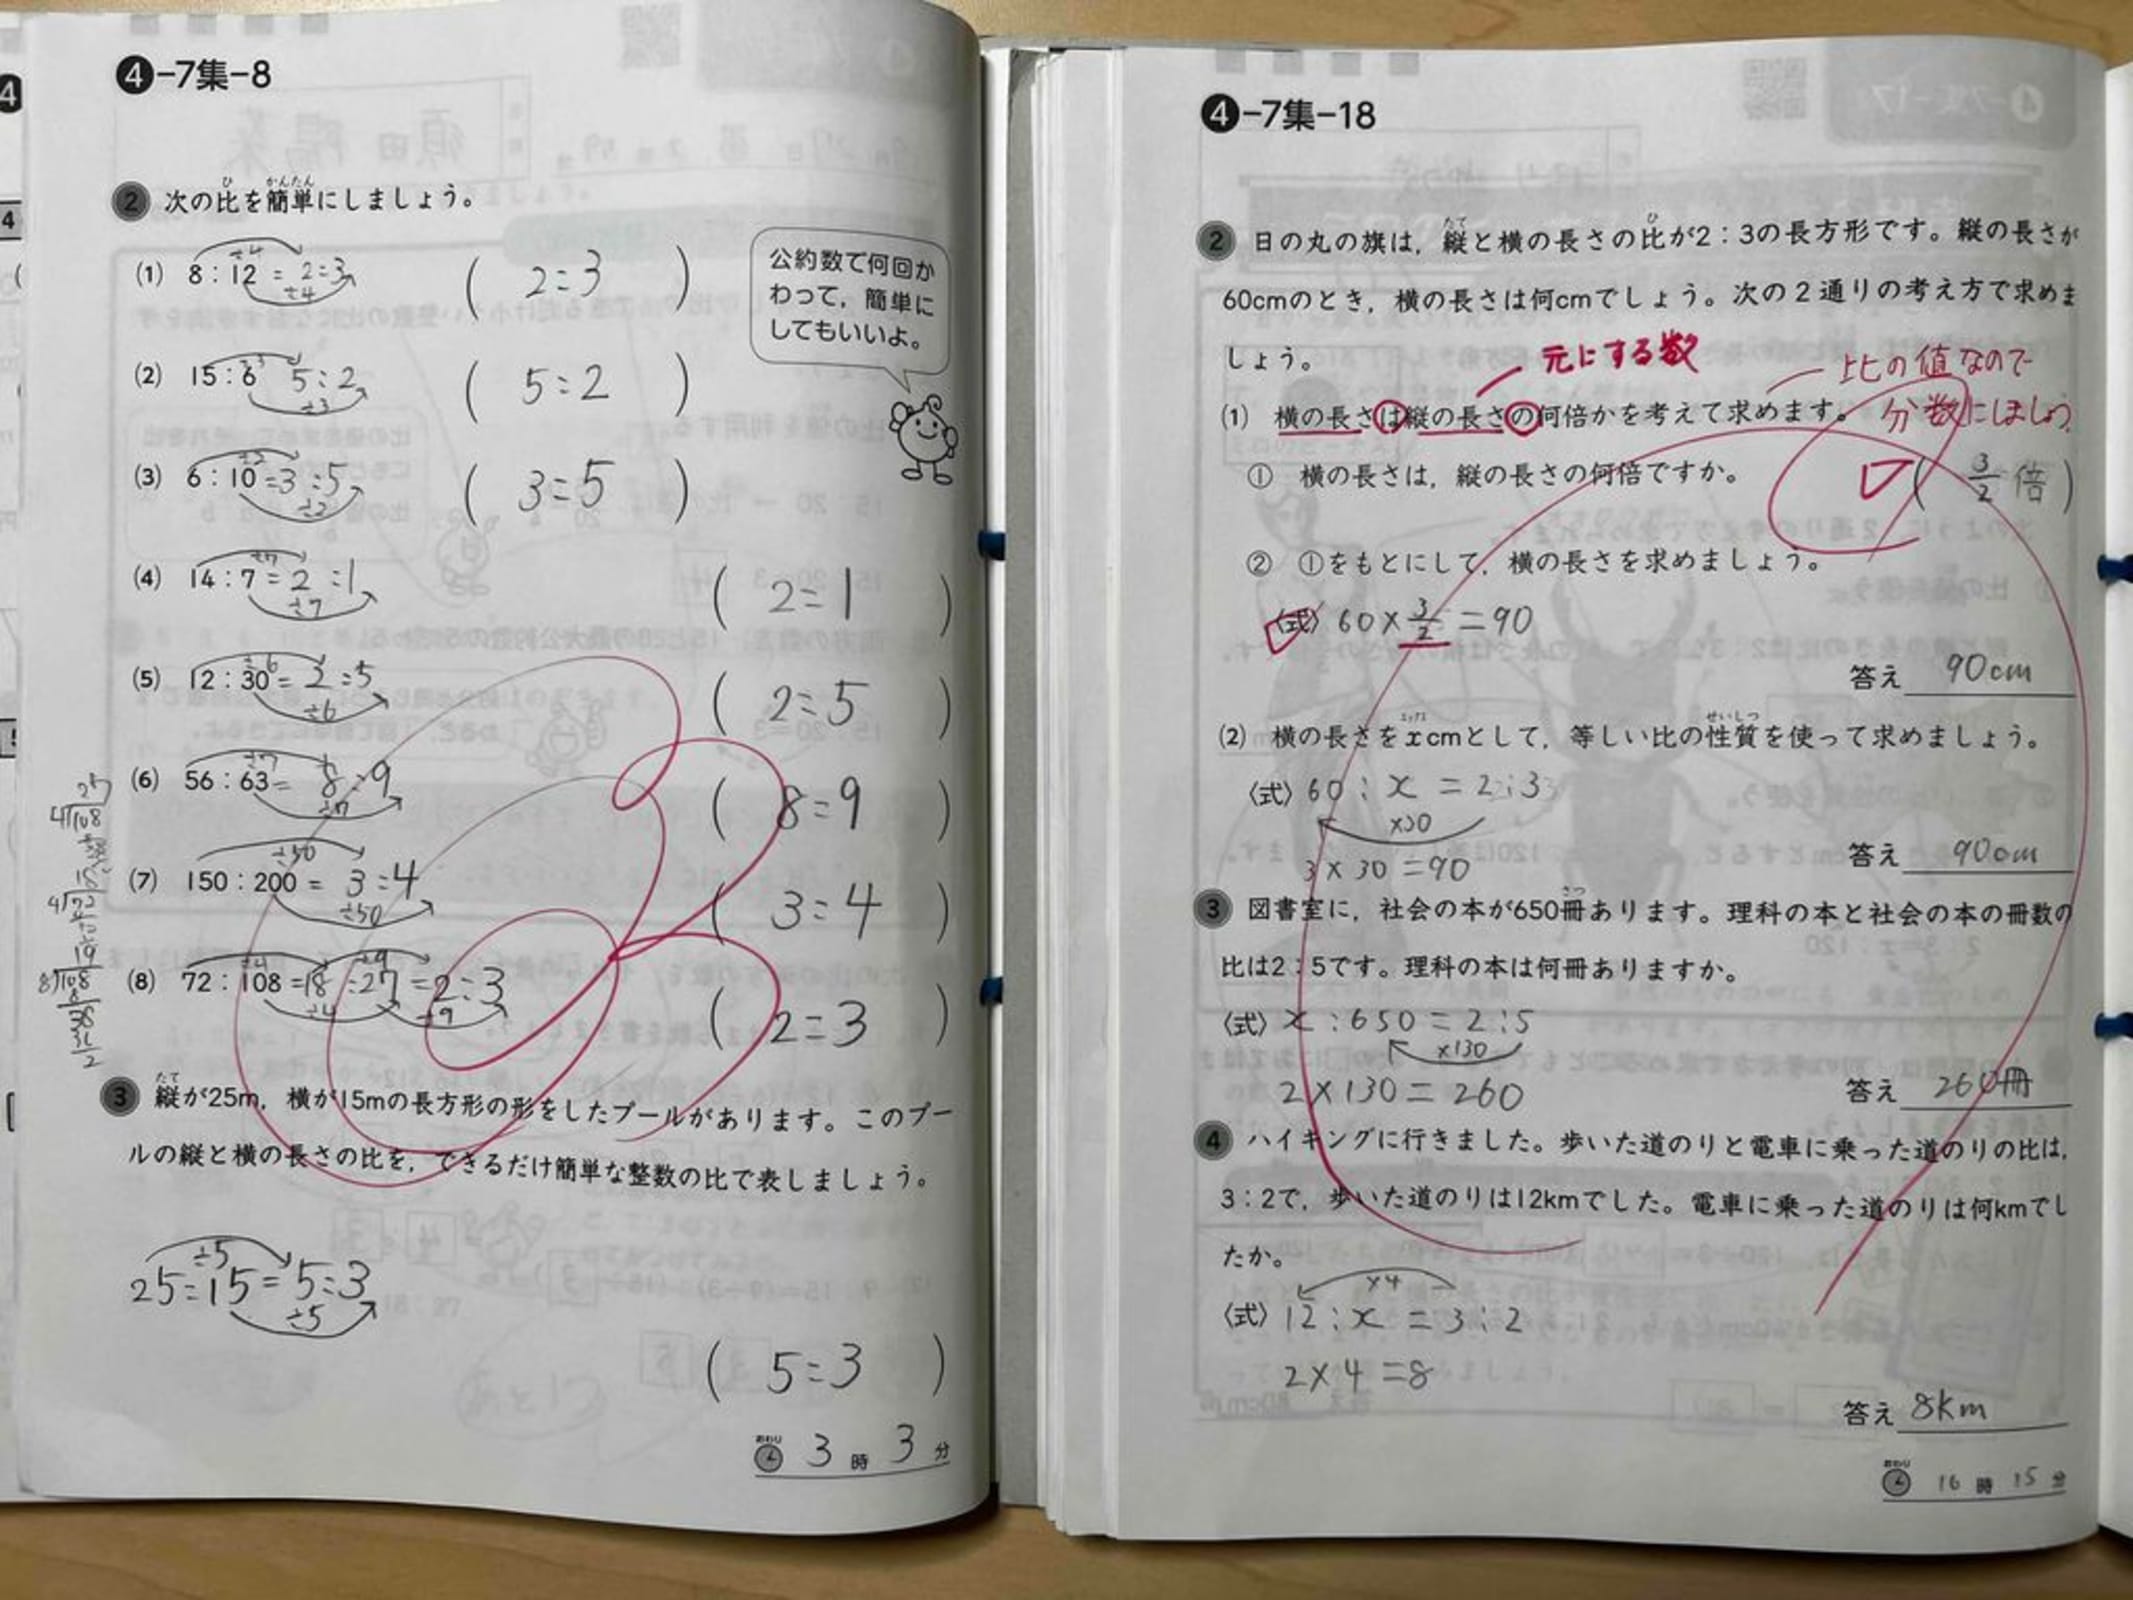 ❹-7集-8
❷ 次の比を簡単にしましょう。
(1) 8:12 = 2:3 ( 2:3 )
÷4
÷4
公約数で何回か
わって,簡単に
してもいいよ。
(2) 15:6 5:2 ( 5:2 )
÷3
÷3
(3) 6:10=3:5 ( 3:5 )
÷2
÷2
(4) 14:7=2:1 ( 2:1 )
÷7
÷7
(5) 12:30=2:5 ( 2:5 )
÷6
÷6
(6) 56:63= 8:9 ( 8:9 )
÷7
÷7
(7) 150:200= 3:4 ( 3:4 )
÷50
÷50
(8) 72:108=18:27=2:3 ( 2:3 )
÷4 ÷9
÷4 ÷9
❸ 縦が25m,横が15mの長方形の形をしたプールがあります。このプー
ルの縦と横の長さの比を,できるだけ簡単な整数の比で表しましょう。
÷5
25:15=5:3
÷5
( 5:3 )
おわり 3時3分
❹-7集-18
❷ 日の丸の旗は,縦と横の長さの比が2:3の長方形です。縦の長さが
60cmのとき,横の長さは何cmでしょう。次の2通りの考え方で求めま
しょう。
元にする数
比の値なので
分数にしましょう
(1) 横の長さは縦の長さの何倍かを考えて求めます。
① 横の長さは,縦の長さの何倍ですか。 ( 3/2 倍 )
② ①をもとにして,横の長さを求めましょう。
〈式〉 60×3/2=90
答え 90cm
(2) 横の長さをxcmとして,等しい比の性質を使って求めましょう。
〈式〉 60:x=2:3
×30
3×30=90
答え 90cm
❸ 図書室に,社会の本が650冊あります。理科の本と社会の本の冊数の
比は2:5です。理科の本は何冊ありますか。
〈式〉 x:650=2:5
×130
2×130=260
答え 260冊
❹ ハイキングに行きました。歩いた道のりと電車に乗った道のりの比は,
3:2で,歩いた道のりは12kmでした。電車に乗った道のりは何kmでし
たか。
×4
〈式〉 12:x=3:2
2×4=8
答え 8km
おわり 16時15分